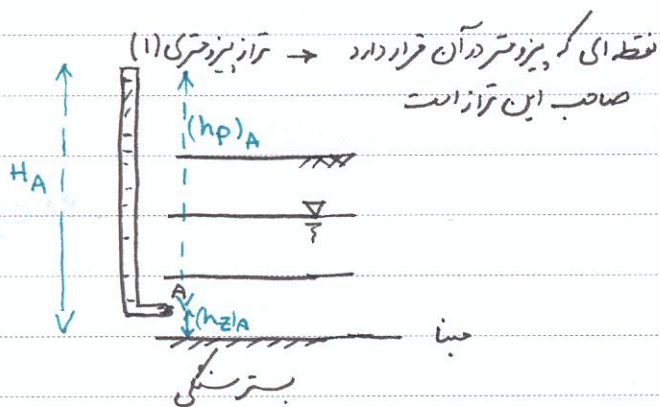 تراز پیزومتری (1) → نقطه‌ای که پیزومتر در آن قرار دارد
صاحب این تراز است
(hp)A
HA
A
(hz)A
مبنا
بستر سنگی